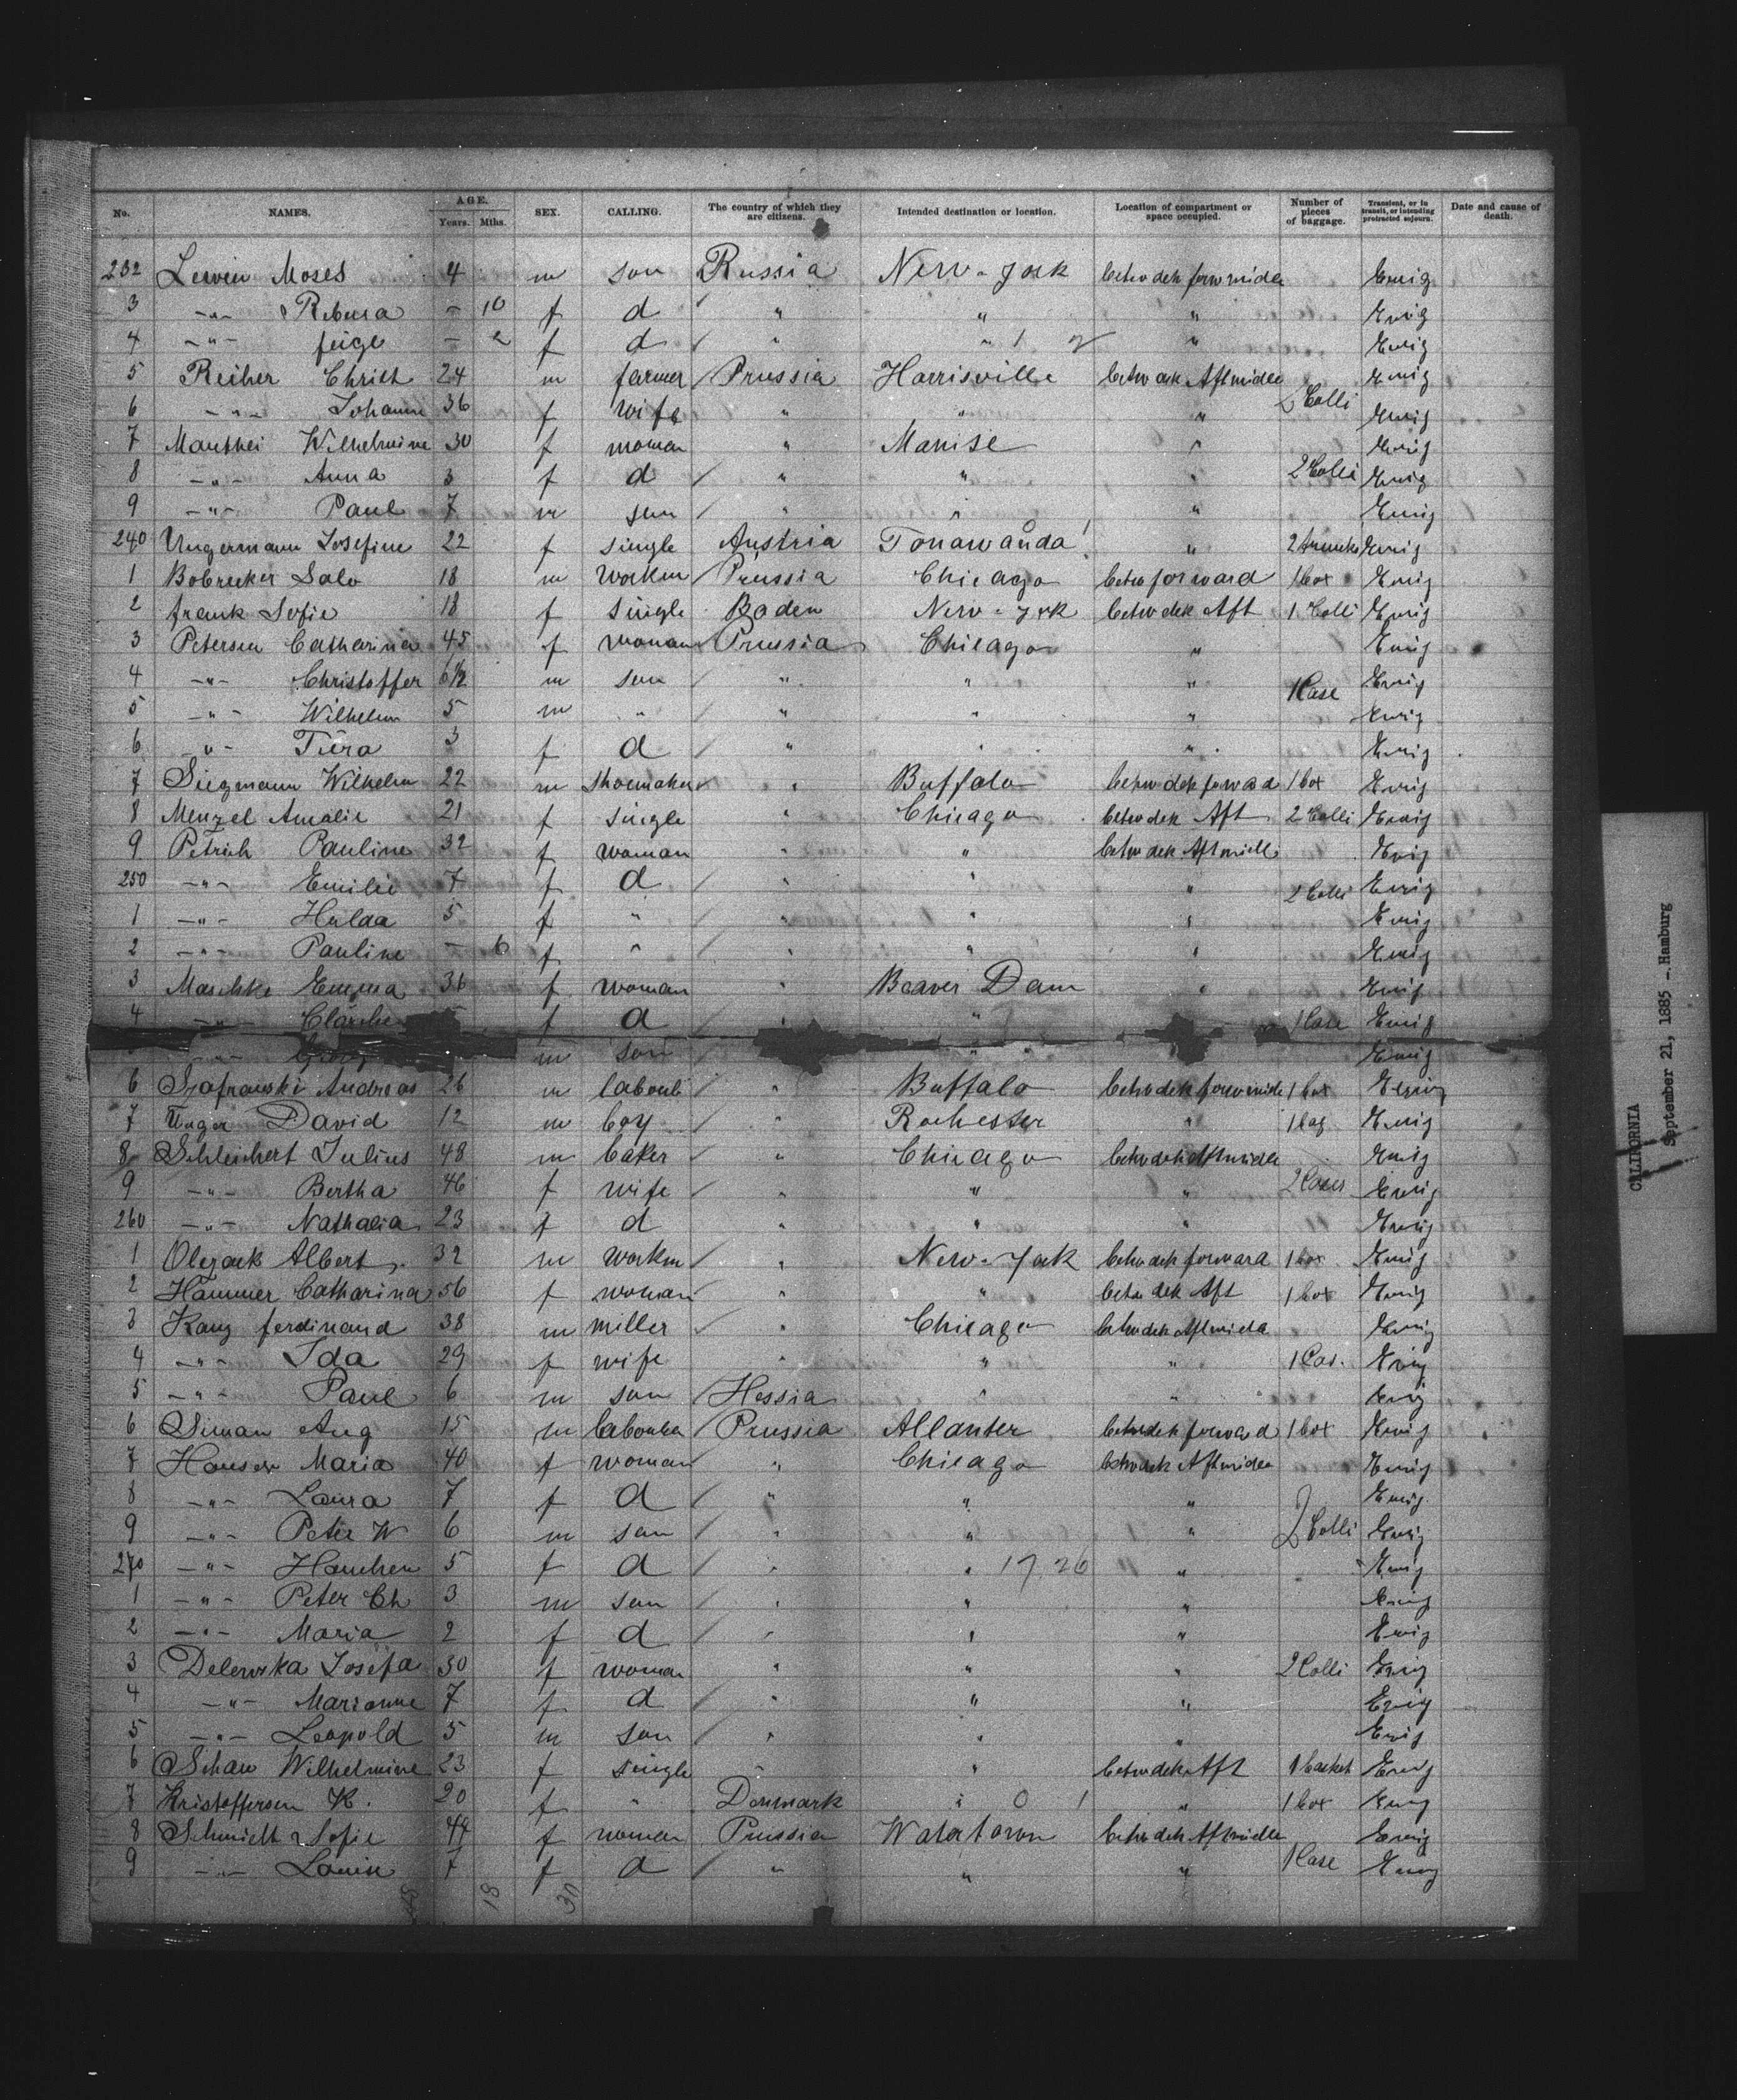 No. NAMES. AGE. Years. Mths. SEX. CALLING. The country of which they are citizens. Intended destination or location. Location of compartment or space occupied. Number of pieces of baggage. Transient, or in transit, or intending protracted sojourn. Date and cause of death.
232 Lewin Moses 4 m son Russia New-York betwdek forwmidle Emig
3 -"- 10 f d " " " Emig
4 -"- feige - 2 f d " " 1 2 " Emig
5 Reiher Christ 24 m farmer Prussia Harrisville betwdek Aftmidle Emig
6 -"- Johann 36 f wife " " " 2 Colli Emig
7 Wilhelmine 30 f woman " " Emig
8 -"- Anna 3 f d " " " 2 Colli Emig
9 -"- Paul 7 m son " " " Emig
240 Ungermann Josefine 22 f single Austria Tonawanda " 2 trunks Emig
1 Bobrecker Salo 18 m workm Prussia Chicago betw forward 1 box Emig
2 frank Sofie 18 f single Baden New-York betwdek Aft 1 Colli Emig
3 Petersen Catharina 45 f woman Prussia Chicago " Emig
4 -"- Christoffer 6½ m son " " " 1 Case Emig
5 -"- Wilhelm 5 m " " " " Emig
6 -"- 3 f d " " " Emig
7 Siegmann Wilhelm 22 m shoemaker " Buffalo betwdek forward 1 box Emig
8 Menzel Amalie 21 f single " Chicago betwdek Aft 2 Colli Emig
9 Petrich Pauline 32 f woman " " betwdek Aftmidle Emig
250 -"- Emilie 7 f d " " " 2 Colli Emig
1 -"- Hulda 5 f " " " " Emig
2 -"- Pauline - 6 f " " " " Emig
3 Maschke Emma 36 f woman " Beaver Dam " Emig
4 -"- f d " " 1 Case Emig
-"- Georg m son " " Emig
6 Szafranski Andreas 26 m " Buffalo betwdek forwmidle 1 box Emig
7 Unger David 12 m boy " Rochester " Emig
8 Schleichert Julius 48 m baker " Chicago betwdek Aftmidle Emig
9 -"- Bertha 46 f wife " " " 2 Cases Emig
260 -"- Nathalia 23 f d " " " Emig
1 Olejack Albert 32 m workm " New-York betwdek forward 1 box Emig
2 Hammer Catharina 56 f woman " " betwdek Aft 1 box Emig
3 ferdinand 38 m miller " Chicago betwdek Aftmidle Emig
4 -"- Ida 29 f wife " " " 1 Cas. Emig
5 -"- Paul 6 m son Hessia " " Emig
6 Siman Aug 15 m labourer Prussia betwdek forward 1 box Emig
7 Maria 40 f woman " Chicago betwdek Aftmidle Emig
8 -"- Laura 7 f d " " " Emig
9 -"- Peter W 6 m son " " " 2 Colli Emig
270 -"- Hanchen 5 f d " " 17 26 " Emig
1 -"- Peter Ch 3 m son " " " Emig
2 -"- Maria 2 f d " " " Emig
3 Delewska Josefa 30 f woman " " " 2 Colli Emig
4 -"- Marianne 7 f d " " " Emig
5 -"- Leopold 5 m son " " " Emig
6 Schaw Wilhelmine 23 f single " " betwdek Aft 1 basket Emig
7 Kristoffersen K. 20 f " Denmark " 0 1 " 1 box Emig
8 Schmidt Sofie 44 f woman Prussia Watertown betwdek Aftmidle Emig
9 -"- Louise 7 f d " " " 1 Case Emig
18 30
CALIFORNIA
September 21, 1885 - Hamburg